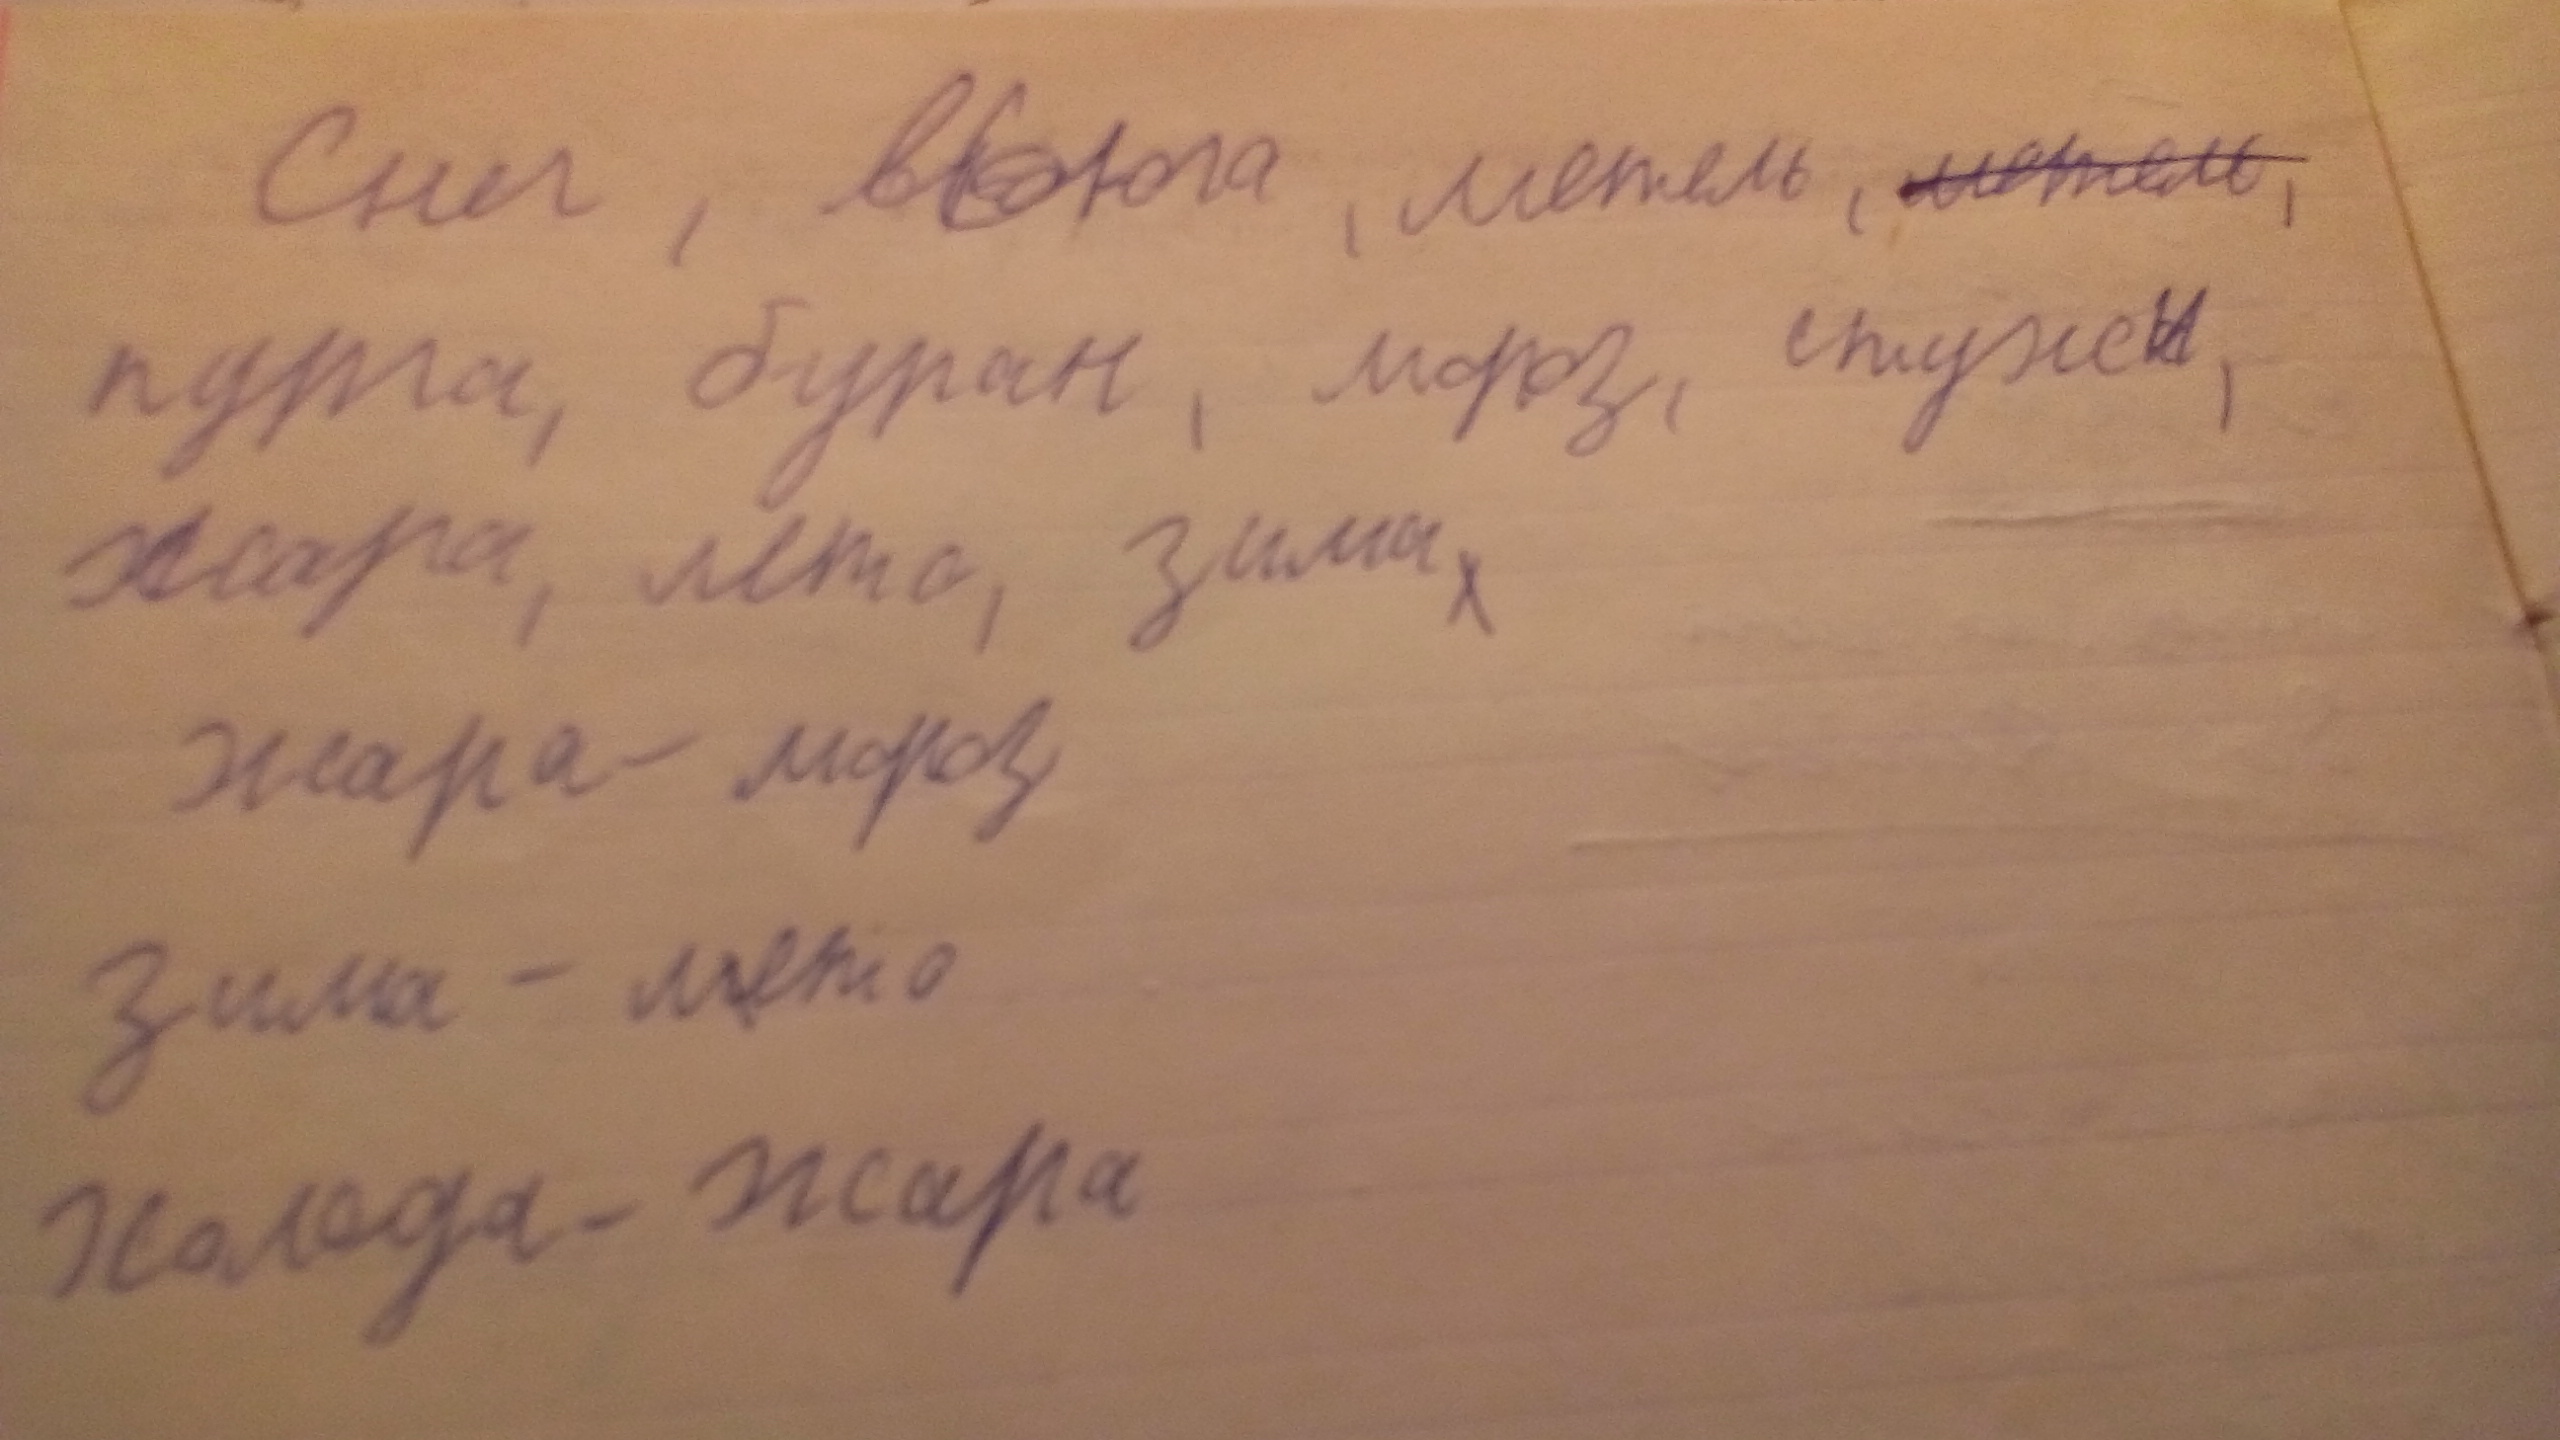 Снег, вьюга, метель, ~~метель,~~
пурга, буран, мороз, стужи,
жара, лето, зима
жара - мороз
зима - лето
холода - жара